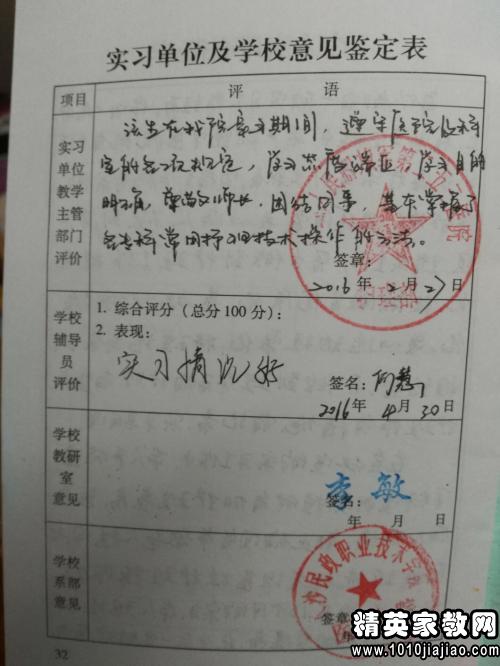 实习单位及学校意见鉴定表
项目
评 语
实习
单位
教学
主管
部门
评价
该生在我院实习期间，遵守医院及科
室的各项规定，学习态度端正，学习目的
明确，尊敬师长，团结同事，基本掌握了
各专科常用护理技术操作的方法。
签章：
2016年2月27日
学校
辅导
员
评价
1. 综合评分（总分100分）：
2. 表现：
实习情况好
签名：
2016年4月30日
学校
教研
室
意见
李敏
签名：
年 月 日
学校
系部
意见
沙民政职业技术学
签章
32
精英家教网
www.1010jiajiao.com